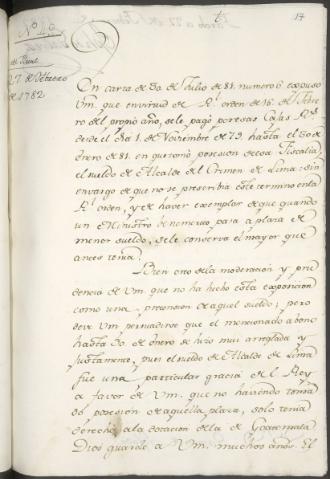 17
Nº
27 de Febrero
de 1782
En carta de 30 de Julio de 81. numero 6 expuso
Vm. que en virtud de Rl. orden de 16 de Febre-
ro del propio año, se le pagó por esas Cajas Rs.
desde el dia 1. de Noviembre de 79. hasta el 30 de
Enero de 81. en que tomó posesion de esa Fiscalia
el sueldo de Alcalde del Crimen de Lima sin
embargo de que no se prescribia este termino en la
Rl. orden, y de haver exemplar de que quando
un Ministro Benemerito pasa a plaza de
menor sueldo, se le conserva el mayor que
antes tenia.
Bien creo de la moderacion y pru-
dencia de Vm. que no ha hecho esta exposicion
como una pretension de aquel sueldo; pero
deve Vm. persuadirse que el mencionado abono
hasta 30. de Enero se hizo mui arreglada y
justamente, pues el sueldo de Alcalde de Lima
fue una particular gracia del Rey
a favor de Vm. que no haviendo toma-
do posesion de aquella plaza, solo tenia
derecho a la dotacion de la de Guatemala
Dios guarde a Vm. muchos años. El